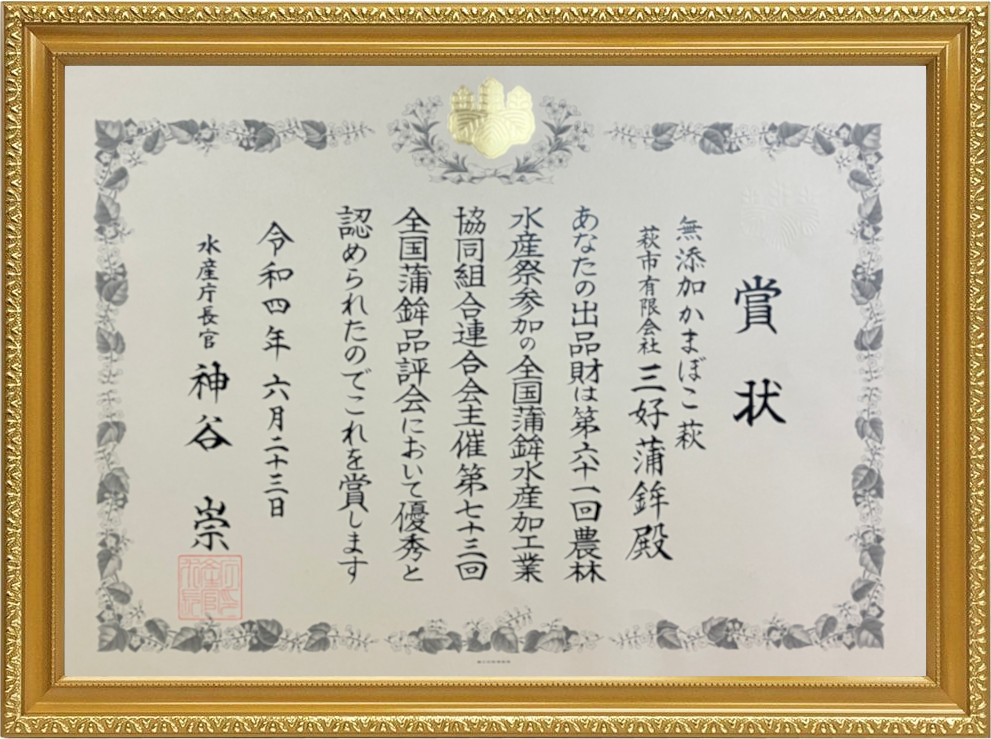 賞状
無添加かまぼこ萩
萩市有限会社 三好蒲鉾殿
あなたの出品財は第六十一回農林
水産祭参加の全国蒲鉾水産加工業
協同組合連合会主催第七十三回
全国蒲鉾品評会において優秀と
認められたのでこれを賞します
令和四年六月二十三日
水産庁長官 神谷崇